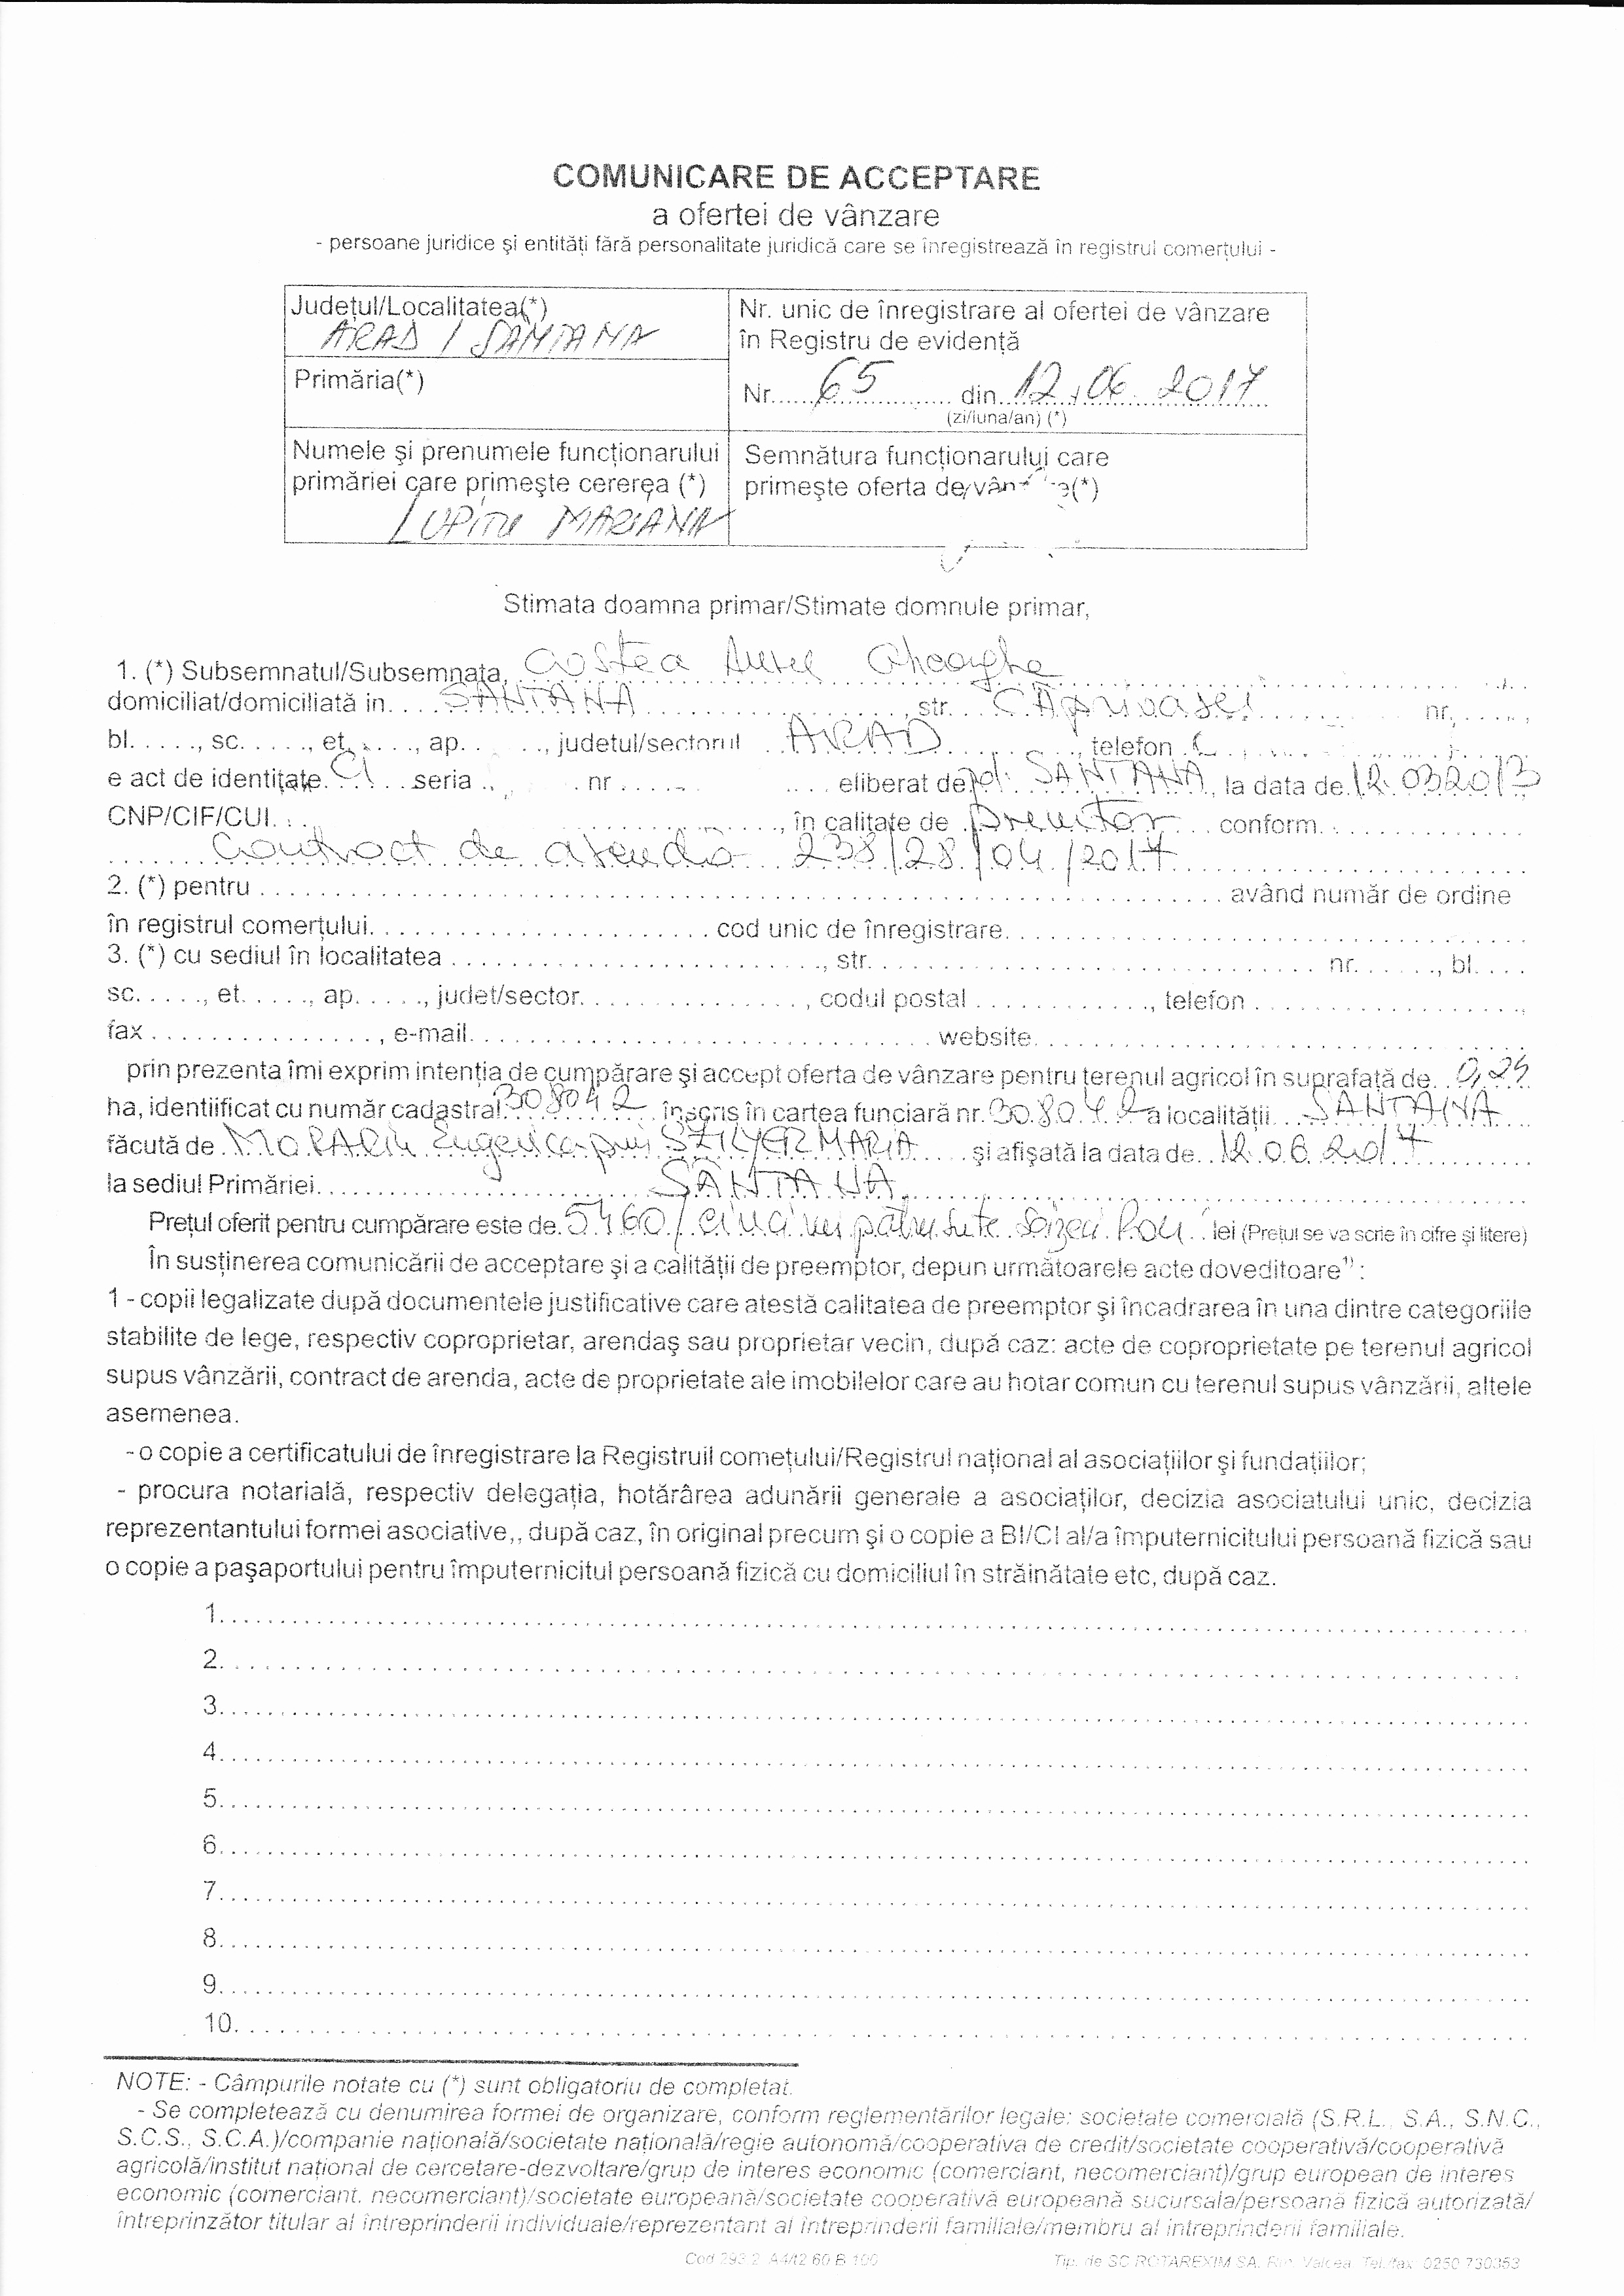 COMUNICARE DE ACCEPTARE
a ofertei de vânzare
- persoane juridice şi entităţi fără personalitate juridică care se înregistrează în registrul comerţului -
Judeţul/Localitatea(*)
ARAD / SANTANA
Nr. unic de înregistrare al ofertei de vânzare
în Registru de evidenţă
Primăria(*)
Nr. 65 din 12.06.2017
(zi/luna/an) (*)
Numele şi prenumele funcţionarului
primăriei care primeşte cererea (*)
LUPITU MARIANA
Semnătura funcţionarului care
primeşte oferta de (*)
Stimata doamna primar/Stimate domnule primar,
1. (*) Subsemnatul/Subsemnata, Costea Aurel Gheorghe
domiciliat/domiciliată in SANTANA, str. Căprioarei nr.
bl. , sc. , et. , ap. , judetul/sectorul ARAD, telefon
e act de identitate CI seria nr eliberat de SANTANA, la data de 12.03.2013
CNP/CIF/CUI. , în calitate de conform.
Contract de 238/28/04/2017
2. (*) pentru având număr de ordine
în registrul comerţului. cod unic de înregistrare.
3. (*) cu sediul în localitatea , str. nr. , bl.
sc. , et. , ap. , judet/sector. , codul postal , telefon ,
fax , e-mail. website.
prin prezenta îmi exprim intenţia de cumpărare şi accept oferta de vânzare pentru terenul agricol în suprafaţă de
ha, identiificat cu număr cadastral 308042 înscris în cartea funciară nr. 308042 a localităţii SANTANA
făcută de MORARIU Eugenica prin SZILVER MARIA şi afişată la data de 12.06.2017
la sediul Primăriei. SANTANA
Preţul oferit pentru cumpărare este de 5460/ lei (Preţul se va scrie în cifre şi litere)
În susţinerea comunicării de acceptare şi a calităţii de preemptor, depun următoarele acte doveditoare¹⁾ :
1 - copii legalizate după documentele justificative care atestă calitatea de preemptor şi încadrarea în una dintre categoriile
stabilite de lege, respectiv coproprietar, arendaş sau proprietar vecin, după caz: acte de coproprietate pe terenul agricol
supus vânzării, contract de arenda, acte de proprietate ale imobilelor care au hotar comun cu terenul supus vânzării, altele
asemenea.
- o copie a certificatului de înregistrare la Registruil comeţului/Registrul naţional al asociaţiilor şi fundaţiilor;
- procura notarială, respectiv delegaţia, hotărârea adunării generale a asociaţilor, decizia asociatului unic, decizia
reprezentantului formei asociative,, după caz, în original precum şi o copie a BI/CI al/a împuternicitului persoană fizică sau
o copie a paşaportului pentru împuternicitul persoană fizică cu domiciliul în străinătate etc, după caz.
1.
2.
3.
4.
5.
6.
7.
8.
9.
10.
NOTE: - Câmpurile notate cu (*) sunt obligatoriu de completat.
- Se completează cu denumirea formei de organizare, conform reglementărilor legale: societate comercială (S.R.L., S.A., S.N.C.,
S.C.S., S.C.A.)/companie naţională/societate naţională/regie autonomă/cooperativa de credit/societate cooperativă/cooperativă
agricolă/institut naţional de cercetare-dezvoltare/grup de interes economic (comerciant, necomerciant)/grup european de interes
economic (comerciant, necomerciant)/societate europeană/societate cooperativă europeană sucursala/persoană fizică autorizată/
întreprinzător titular al întreprinderii individuale/reprezentant al întreprinderii familiale/membru al întreprinderii familiale.
Cod 293 2 A4/t2 60 B 100
Tip. de SC ROTAREXIM SA, Rm. Valcea, Tel./fax: 0250 730353